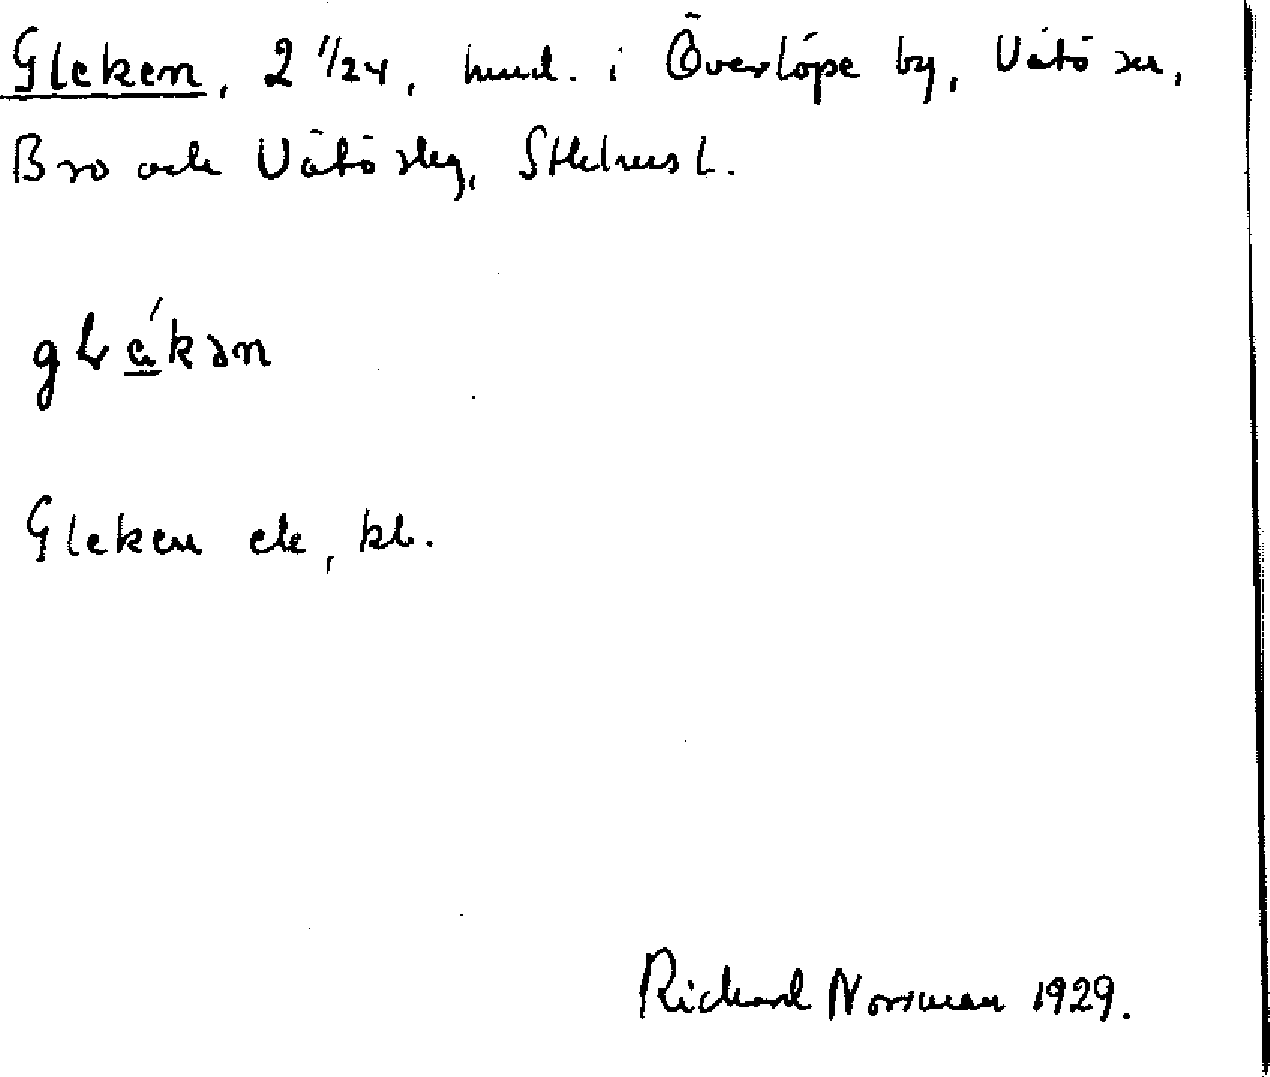 Gleken, 2 1/24, hmd. i Överlöpe by, Vätö sn,
Bro och Vätö skg, Sthlms l.
Gleken ek, kb.
Richard Norrman 1929.